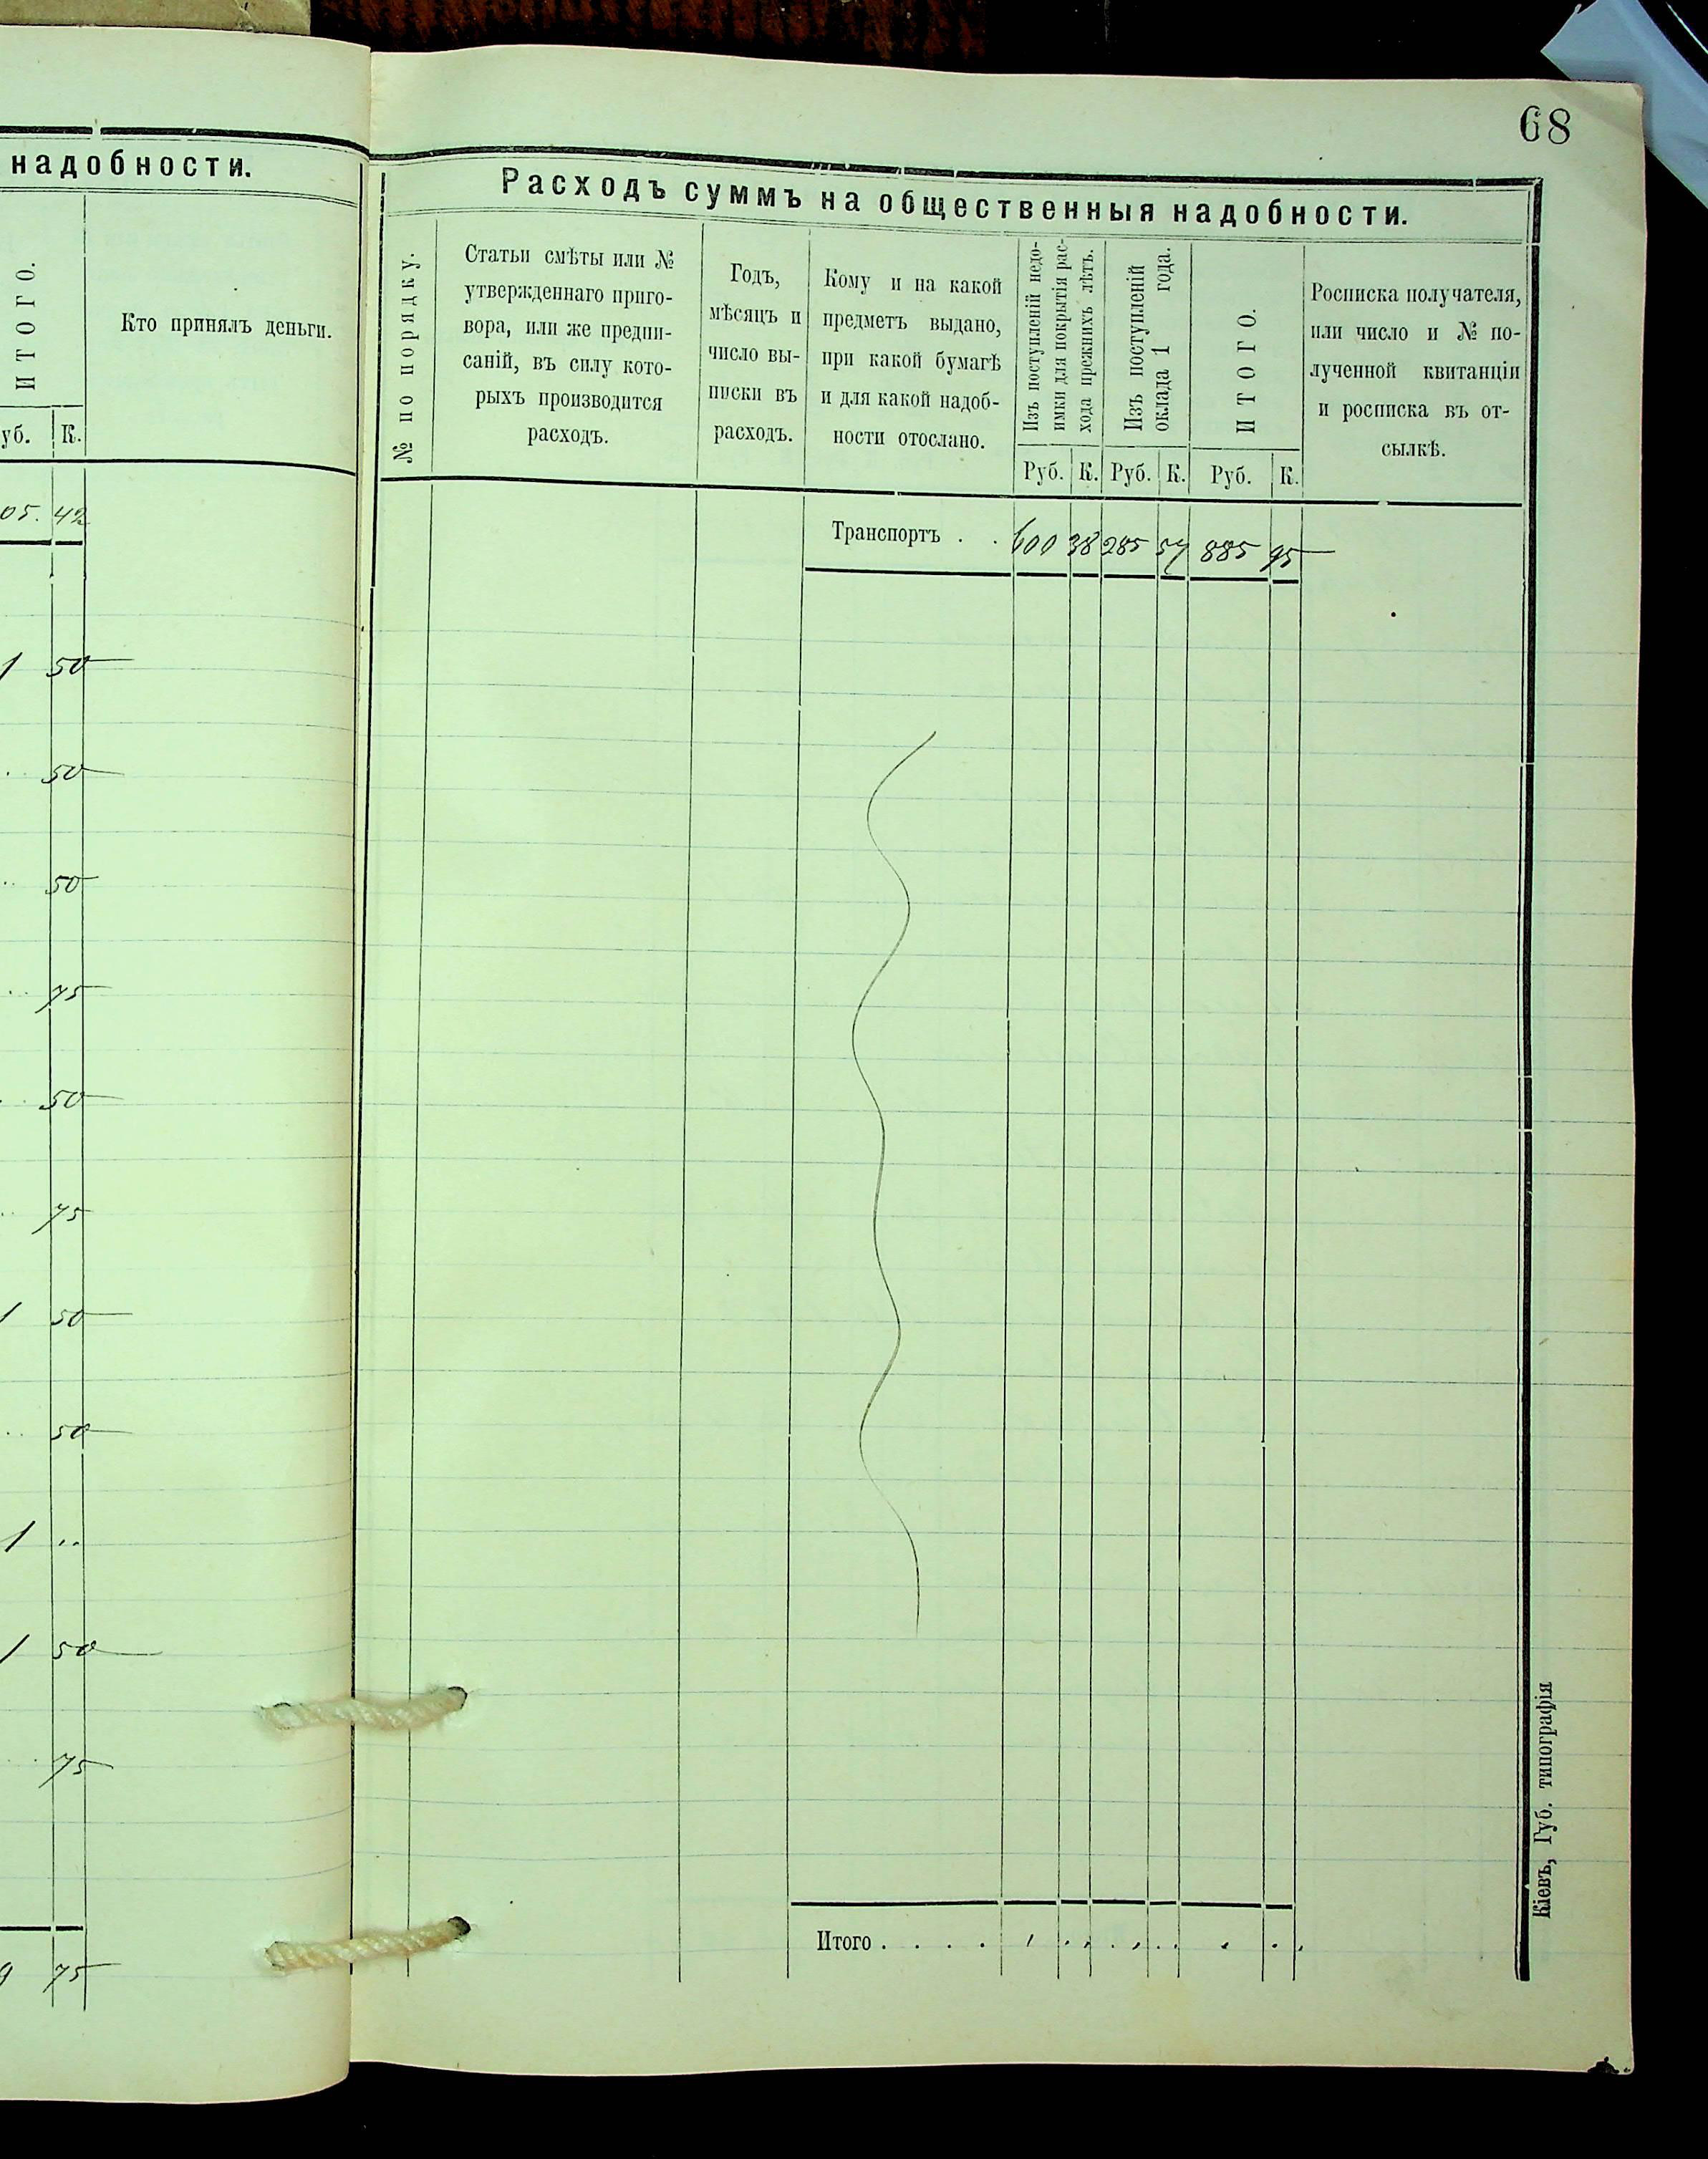 68
надобности.
ИТОГО.
Кто принялъ деньги.
уб. К.
05. 42
1 50
50
50
75
50
75
1 50
50
1
1 50
75
9 75
Расходъ суммъ на общественныя надобности.
№ по порядку.
Статьи смѣты или №
утвержденнаго приго-
вора, или же предпи-
саній, въ силу кото-
рыхъ производится
расходъ.
Годъ,
мѣсяцъ и
число вы-
писки въ
расходъ.
Кому и на какой
предметъ выдано,
при какой бумагѣ
и для какой надоб-
ности отослано.
Изъ поступленій недо-
имки для покрытія рас-
хода прежнихъ лѣтъ.
Изъ поступленій
оклада 1 года.
ИТОГО.
Росписка получателя,
или число и № по-
лученной квитанціи
и росписка въ от-
сылкѣ.
Руб. К. Руб. К. Руб. К.
Транспортъ . . 600 38 285 57 885 95
Итого . . . .
Кіевъ, Губ. типографія